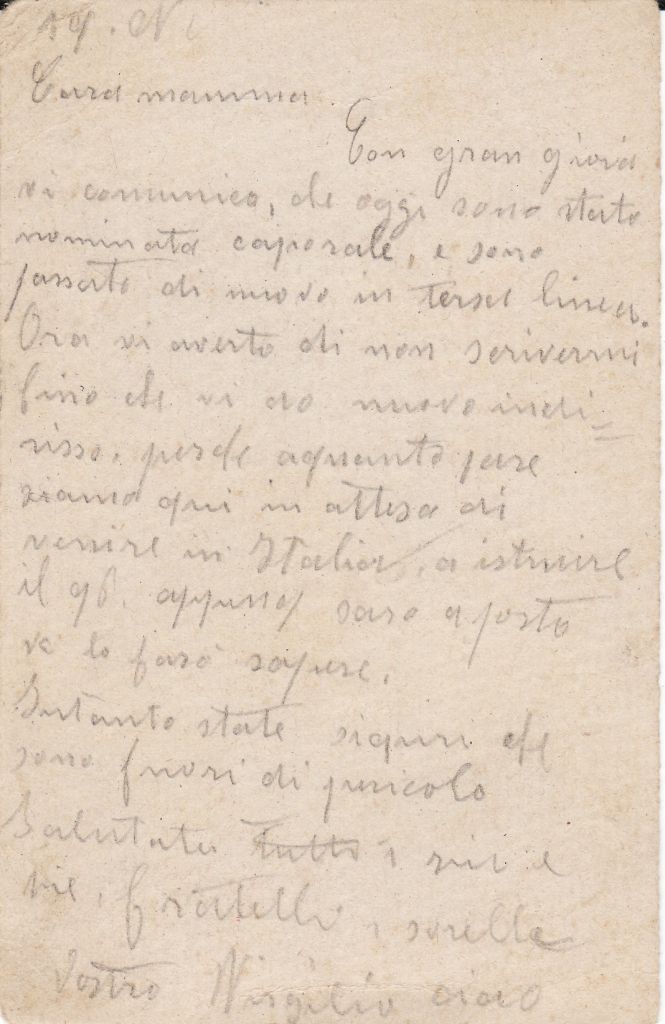 19. N
Cara mamma
Con gran gioia
vi comunico, che oggi sono stato
nominato caporale, e sono
passato di nuovo in terset linea.
Ora vi averto di non scrivermi
fino che vi do nuovo indi=
risso. perche aquanto pare
siamo qui in attesa di
venire in Italia, a istruire
il 98. appena saro a posto
ve lo farò sapere.
Intanto state siguri che
sono fuori di pericolo
Salutatei tutti i zii e
zie, fratelli, sorelle
Vostro Virgilio ciao